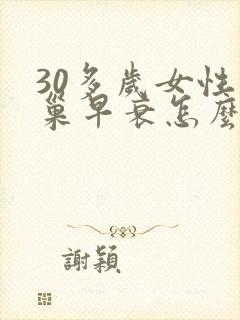 30多歲女性
巢早衰怎麽
謝穎